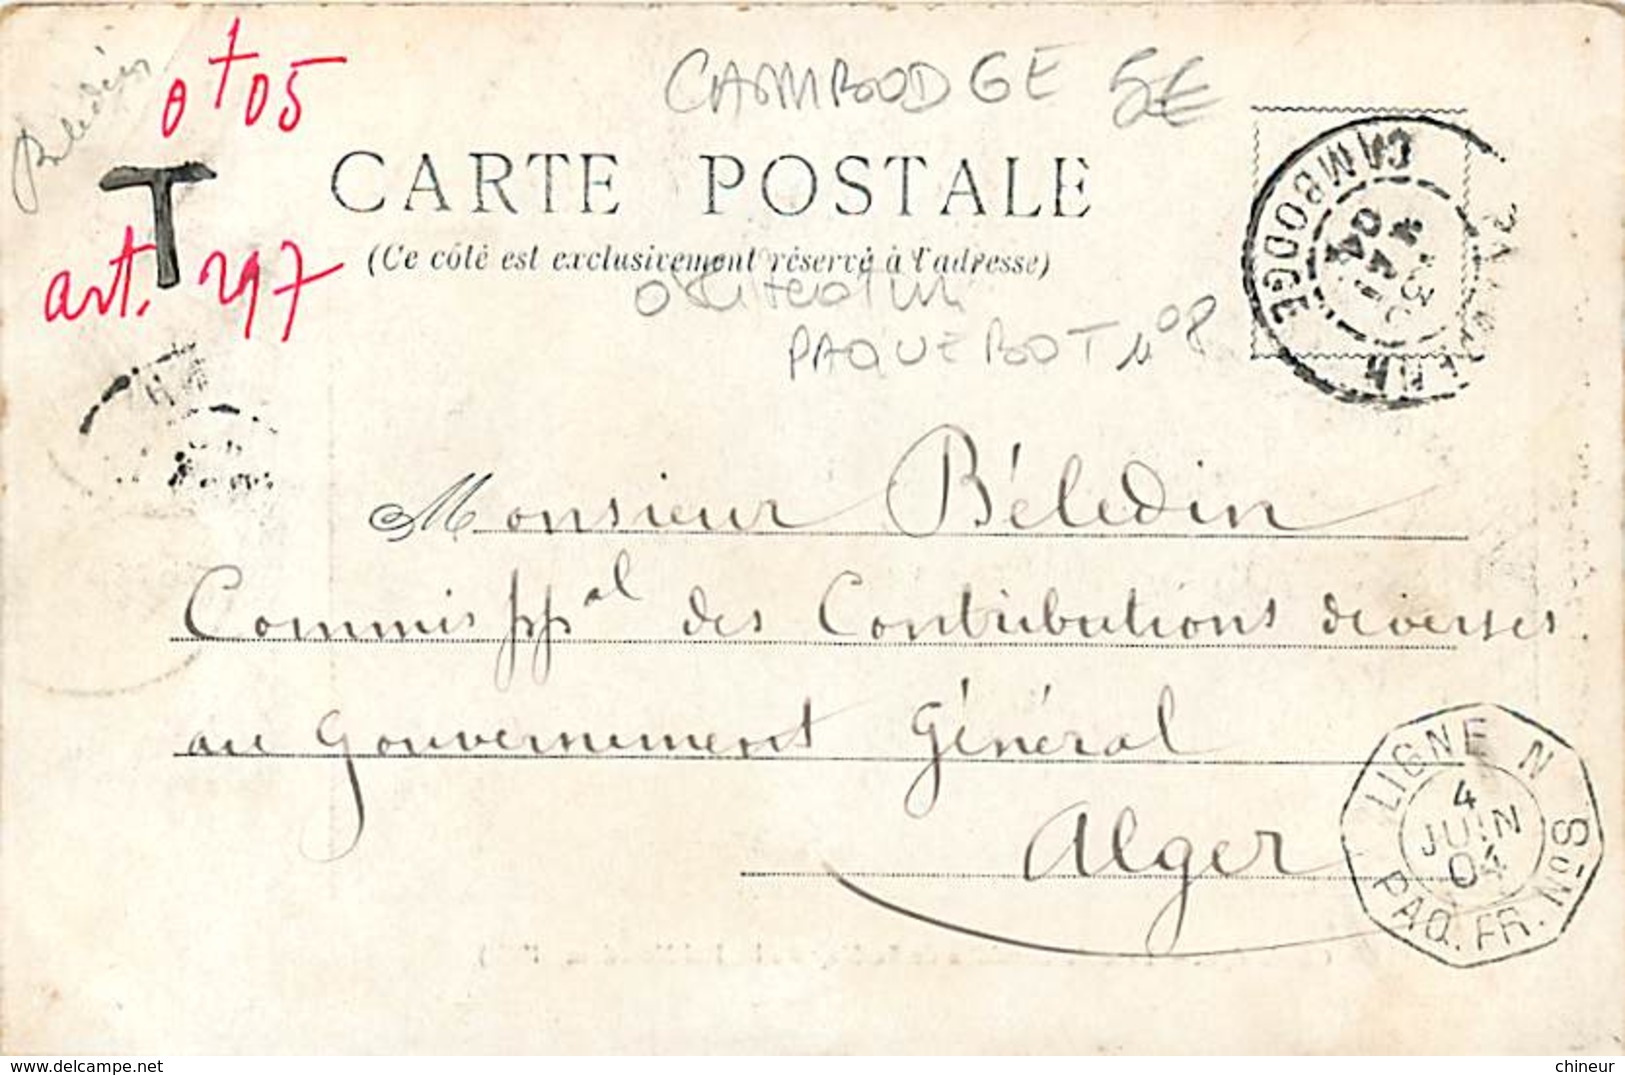 Bélédin
0f05
T
art. 297
CAMBODGE 5€
CARTE POSTALE
(Ce côté est exclusivement réservé à l'adresse)
PAQUEBOT n°8
CAMBODGE
04
Monsieur Béledin
Commis ppal des Contributions diverses
au Gouvernement Général
Alger
LIGNE N
4
JUIN
04
PAQ. FR. No 8
chineur